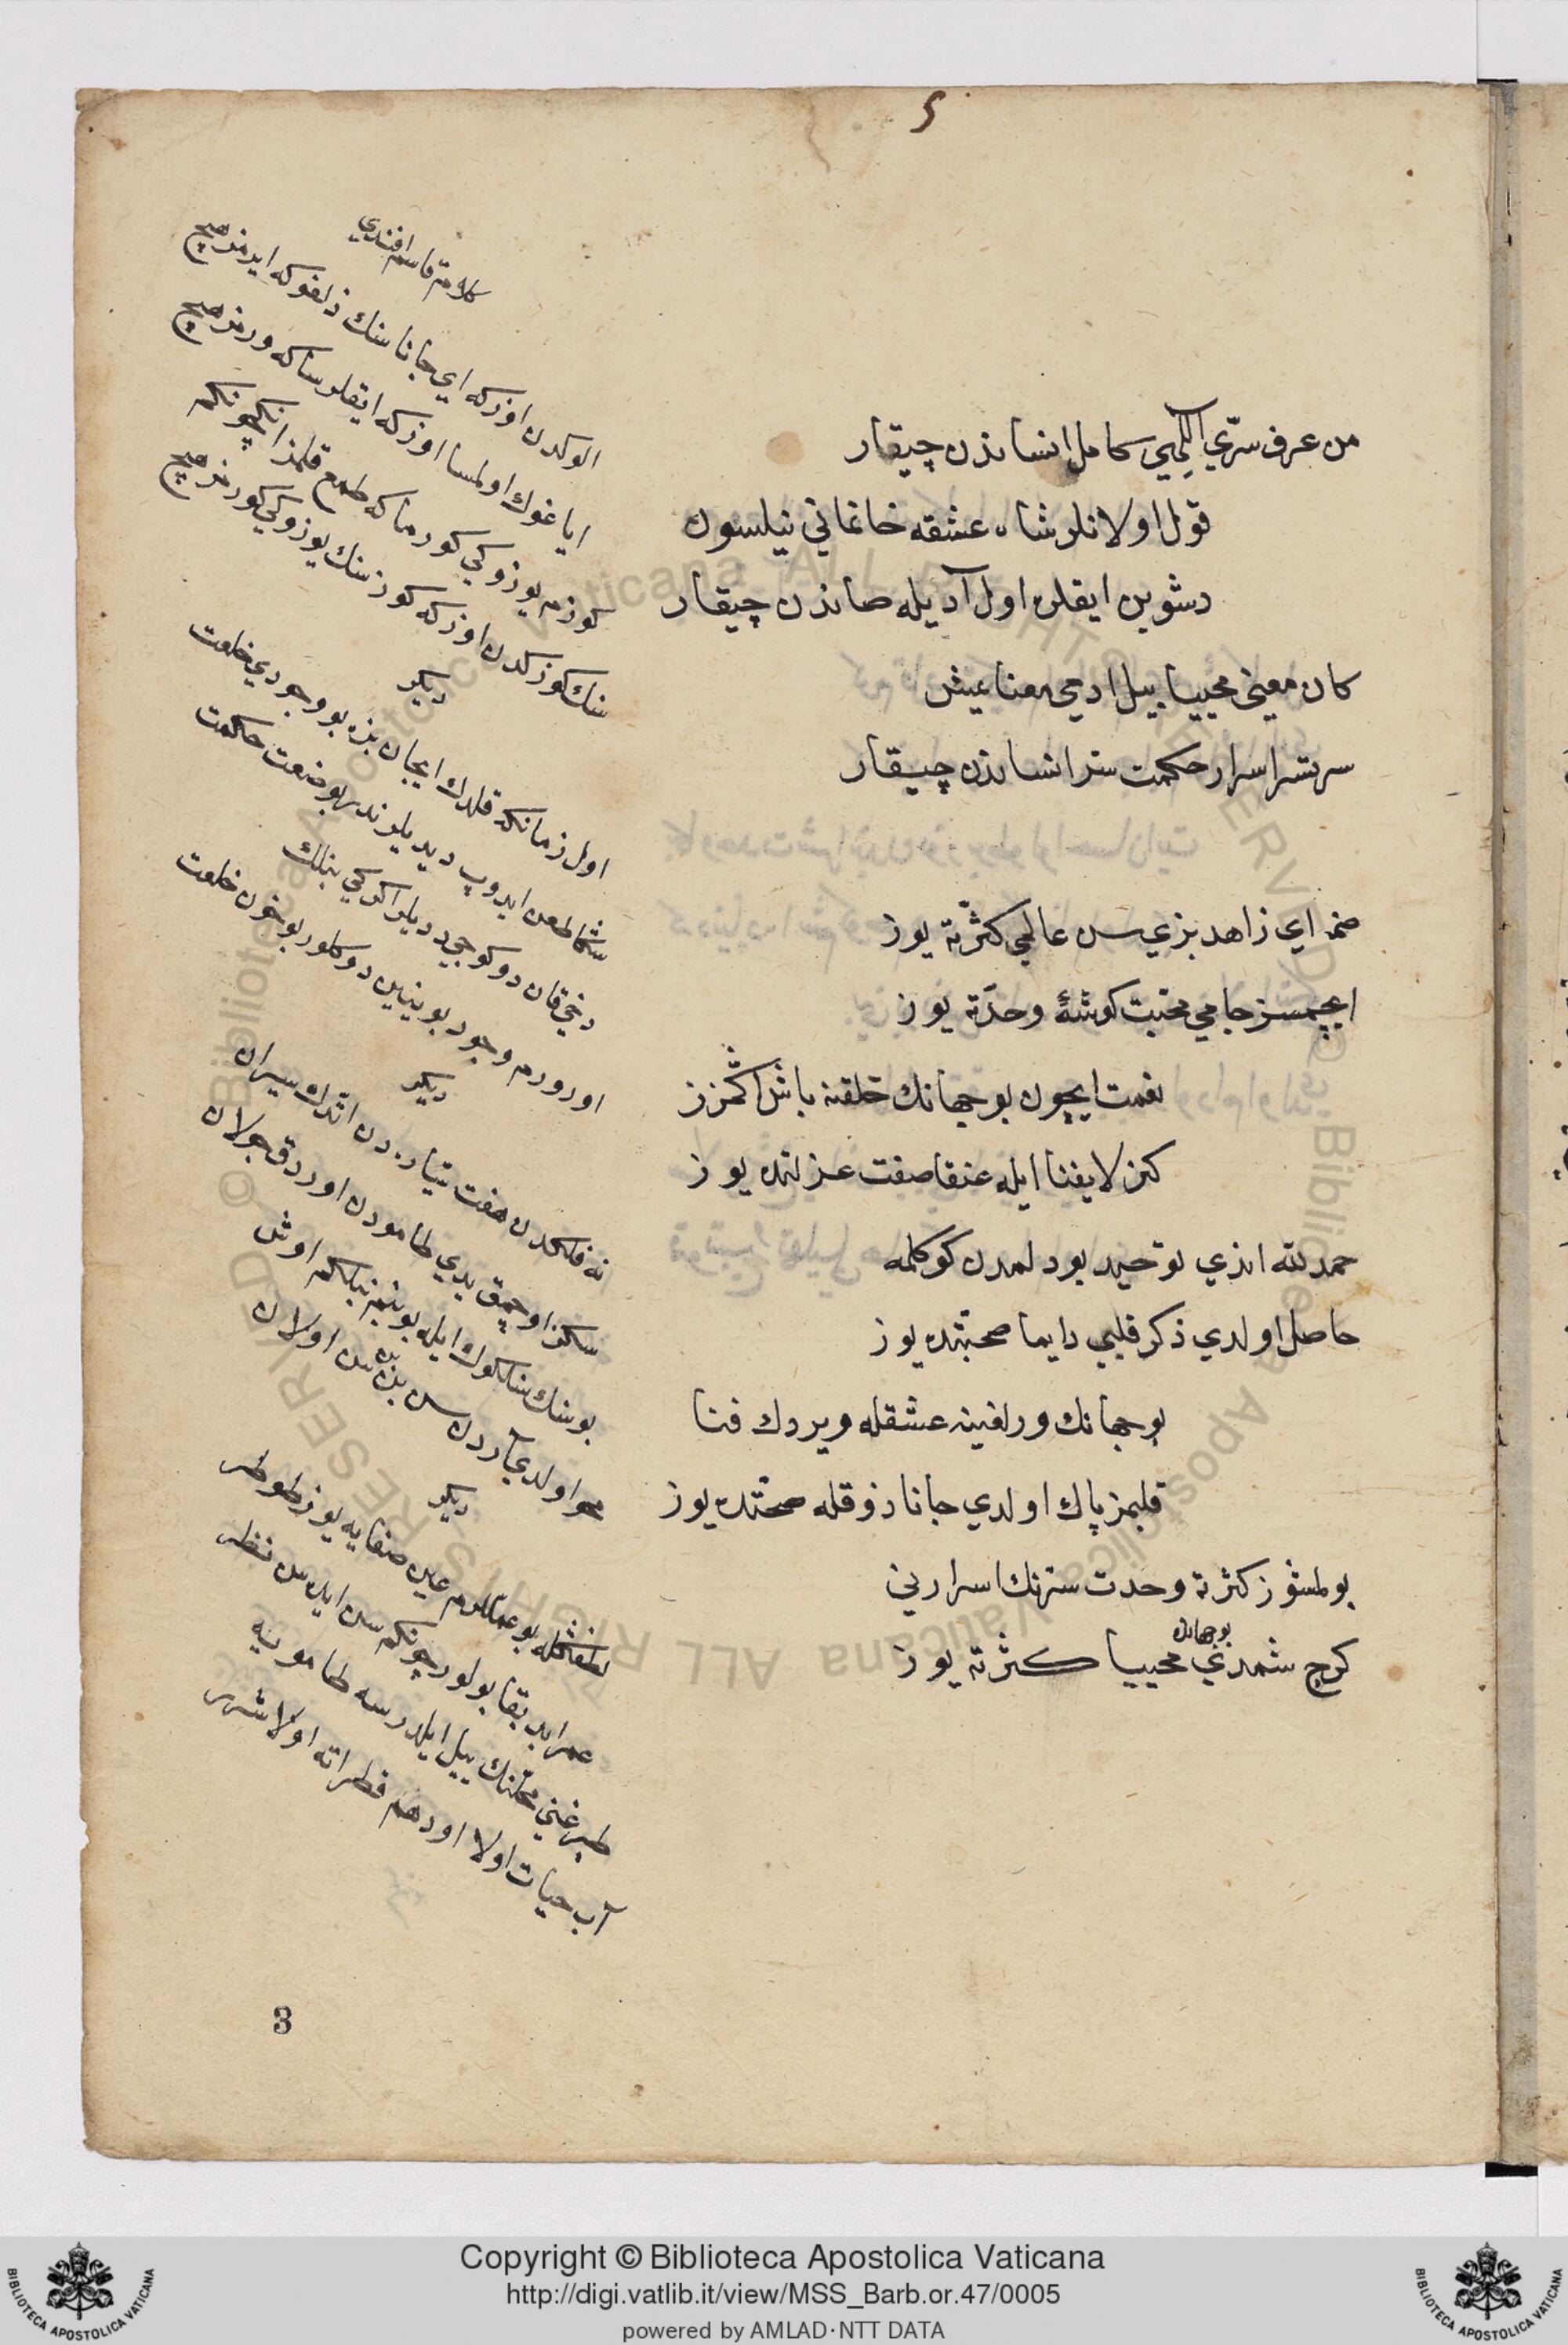 5
من عرف سرّي اللهي كامل انساندن چيقار
قول اولانلر شاه عشقه خانماني نيلسون
دشوبن ايقلره اول آديله صاندن چيقار
كان معيني محييا بيل ادمي معنا يميش
سربسر اسرار حكمت ستر انساندن چيقار
صنمه اي زاهد بزي سن عالمي كثرتده يوز
ايچمسز جامي محبت كوشهٔ وحدته يوز
نعمت ايچون بو جهانك خلقنه باش اكمزز
كنز لا يفنا ايله عنقا صفت عزلتده يوز
حمد لله انذي توحيد بودلمدن كوكلمه
حاصل اولدي ذكر قلبي دايما صحبتده يوز
بو جهانك ورلغينه عشقله ويردك فنا
قلبمز پاك اولدي جانا ذوقله صحتده يوز
بولمشوز كثرته وحدت سترنك اسراريني
كرچ شمدي محييا كثرته يوز
بو جهانده
كلام قاسم افندي
الوكدن اوزكه اي جانا سنك ذلفوكه ايرمز هيچ
اياغوك اولمسا اوزكه ايقلر ساكه ورمز هيچ
كوزم يوزوكي كورماكه طمع قلمز انكچونكم
سنك كوزكدن اوزكه كوز سنك يوزوكي كورمز هيچ
ديكر
اول زمانكه قلدك ايجان بزه بو وجودي خلعت
شماطعن ايدوپ ديديلر ندر بو صنعت حكمت
دخي قان دوكوجي ديديلر اكوكي بنلك
اورورم وجود بوينين دوكلور بو خون خلعت
ديكر
نه فلكدن هفت سياره دن اتدك سيران
سكز اوچمق يدي طامودن اوردق جولان
بو سنك سلكوك ايله بو بنم بنلكم اوش
محو اولديجاردن سن بزه سن اولان
ديكر
لطفكله بو عمللرم عين صفايه يوز طوطر
عمر ابد بقا بولور چونكم سن ايده سن نظر
طپرغني محلنك ييل ايلدرسه طامويه
آب حيات اولا اودهم قطراته اولا شرر
8
Copyright © Biblioteca Apostolica Vaticana
http://digi.vatlib.it/view/MSS_Barb.or.47/0005
powered by AMLAD·NTT DATA